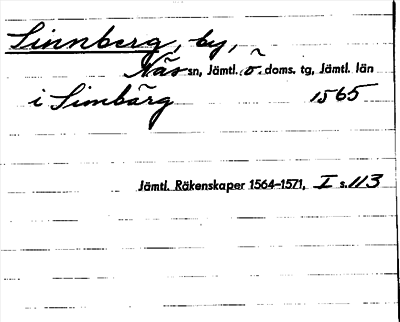 Sinnberg, by,
Näs sn, Jämtl. ö. doms. tg, Jämtl. län
i Simbärg 1565
Jämtl. Räkenskaper 1564–1571, I s. 113